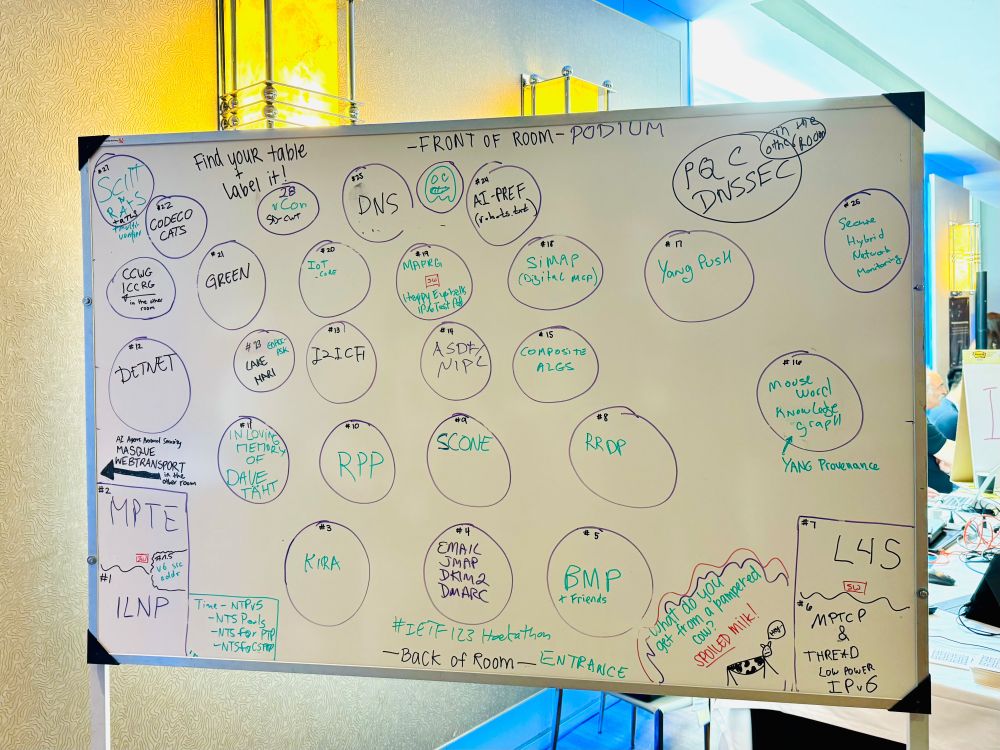 -FRONT OF ROOM- PODIUM
Find your table
+
Label it!
#27
SCITT
RATS
+ multi
#22
CODECO
CATS
28
vCon
SD-CWT
#25
DNS
OC
#24
AI-PREF
(robots.txt)
PQC
DNSSEC
in the
other ROOM
#26
Secure
Hybrid
Network
Monitoring
CCWG
ICCRG
in the other
room
#21
GREEN
#20
IoT
-CORE
#19
MAPRG
SW
Happy Eyeballs
IPv6 Test Pod
#18
SIMAP
(Digital map)
#17
Yang Push
#12
DETNET
#23
EDHOC
PSK
LAKE
HARI
#13
I2ICF
#14
ASDF/
NIPC
#15
COMPOSITE
ALGS
#16
Mouse
Word
Knowledge
graph
YANG Provenance
AI Agent
Security
MASQUE
WEBTRANSPORT
in the
other room
#11
IN LOVING
MEMORY
OF
DAVE
TÄHT
#10
RPP
#9
SCONE
#8
RRDP
#2
MPTE
SW
#1.5
v6 src
addr
#1
ILNP
Time - NTPv5
- NTS Pools
- NTS for PTP
#3
KIRA
#4
EMAIL
JMAP
DKIM2
DMARC
#5
BMP
+ Friends
What do you
get from a pampered
cow?
SPOILED milk!
#7
L4S
SW
#6
MPTCP
&
THREAD
LOW POWER
IPv6
#IETF123 Hackathon
-Back of Room- ENTRANCE